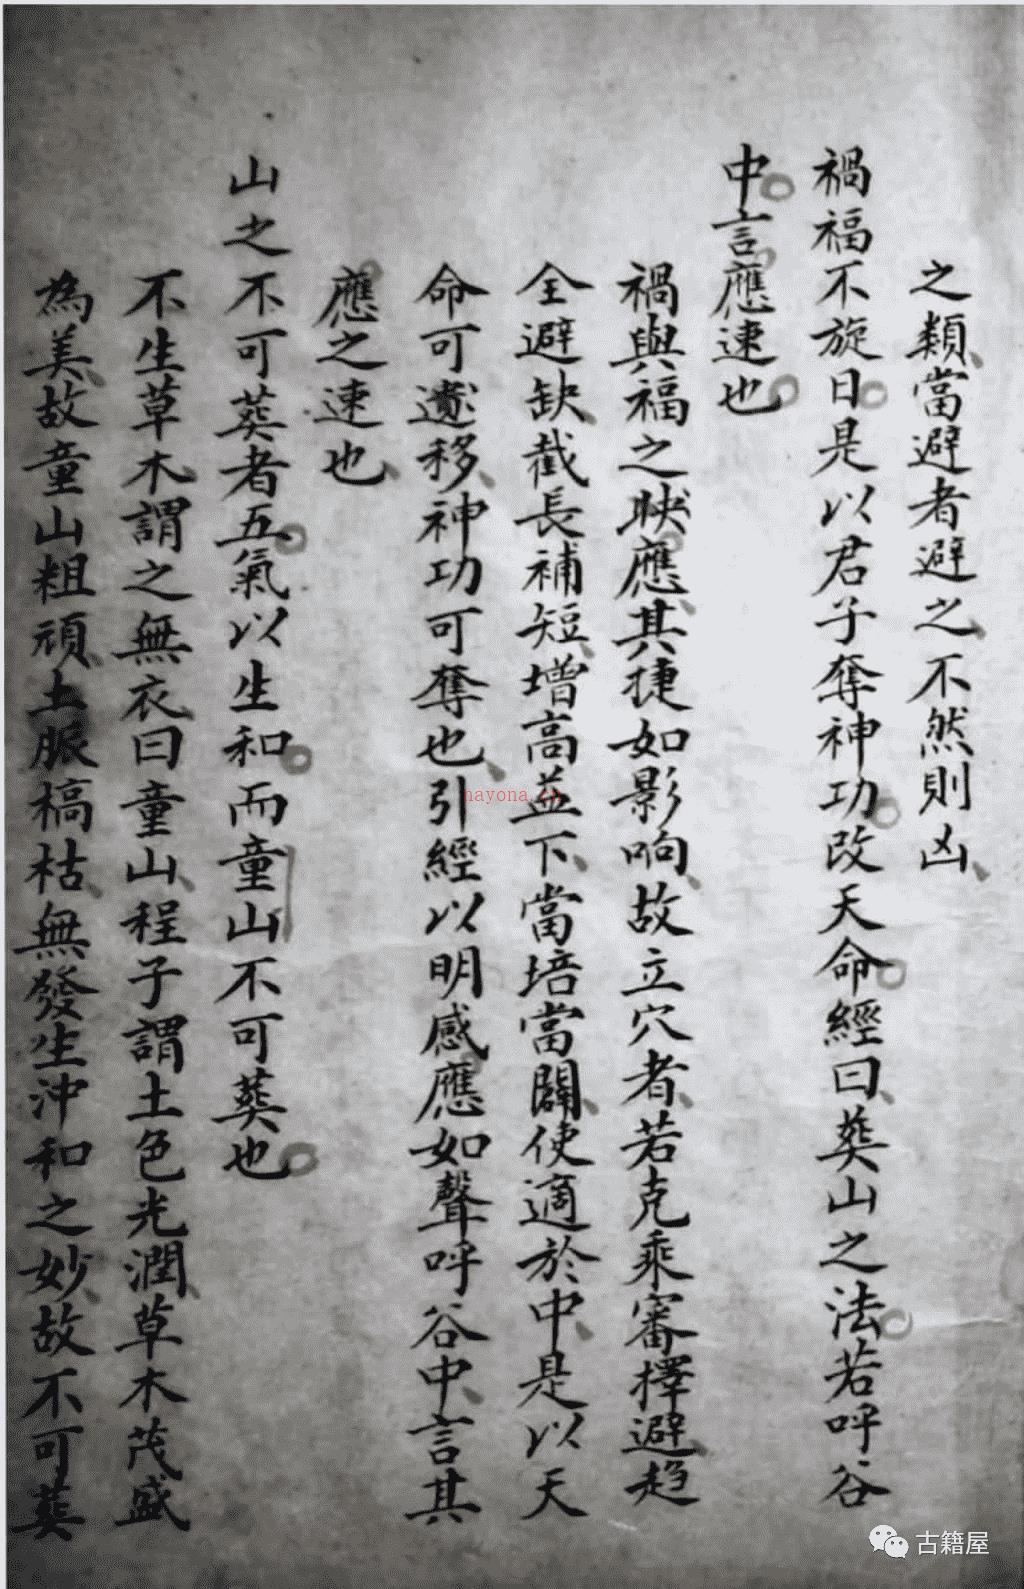 之類當避者避之不然則凶
禍福不旋日是以君子奪神功改天命經曰葬山之法若呼谷
中言應速也
禍與福之映應其捷如影响故立穴者若克乘審擇避趋
全避缺截長補短增高益下當培當闢使適於中是以天
命可遷移神功可奪也引經以明感應如聲呼谷中言其
應之速也
山之不可葬者五氣以生和而童山不可葬也
不生草木謂之無衣曰童山程子謂土色光潤草木茂盛
為美故童山粗頑土脈槁枯無發生沖和之妙故不可葬
hayona.cn
古籍屋